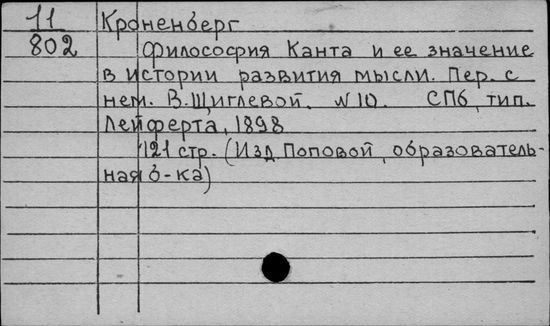 11 Кроненберг
802 Философия Канта и ее значение
в истории развития мысли. Пер. с
нем. В. Щиглевой. N 10. СПб, тип.
Лейферта, 1898
121 стр. (Изд. Поповой, образователь-
ная б-ка)